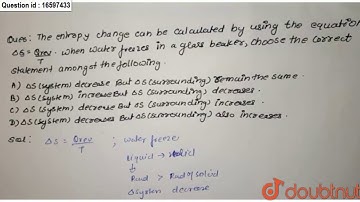 Question id : 16597433
Ques: The entropy change can be calculated by using the equation
ΔS = Qrev/T . when water freezes in a glass beaker, choose the correct
statement amongst the following.
A) ΔS (system) decrease But ΔS (surrounding) remain the same.
B) ΔS (system) increase But ΔS (surrounding) decreases.
C) ΔS (system) decrease But ΔS (surrounding) increases.
D) ΔS (system) decreases But ΔS (surrounding) also increases.
Sol: ΔS = Qrev/T ; water freezes
liquid → solid
> Rad of solid
ΔSystem decrease
doubtnut